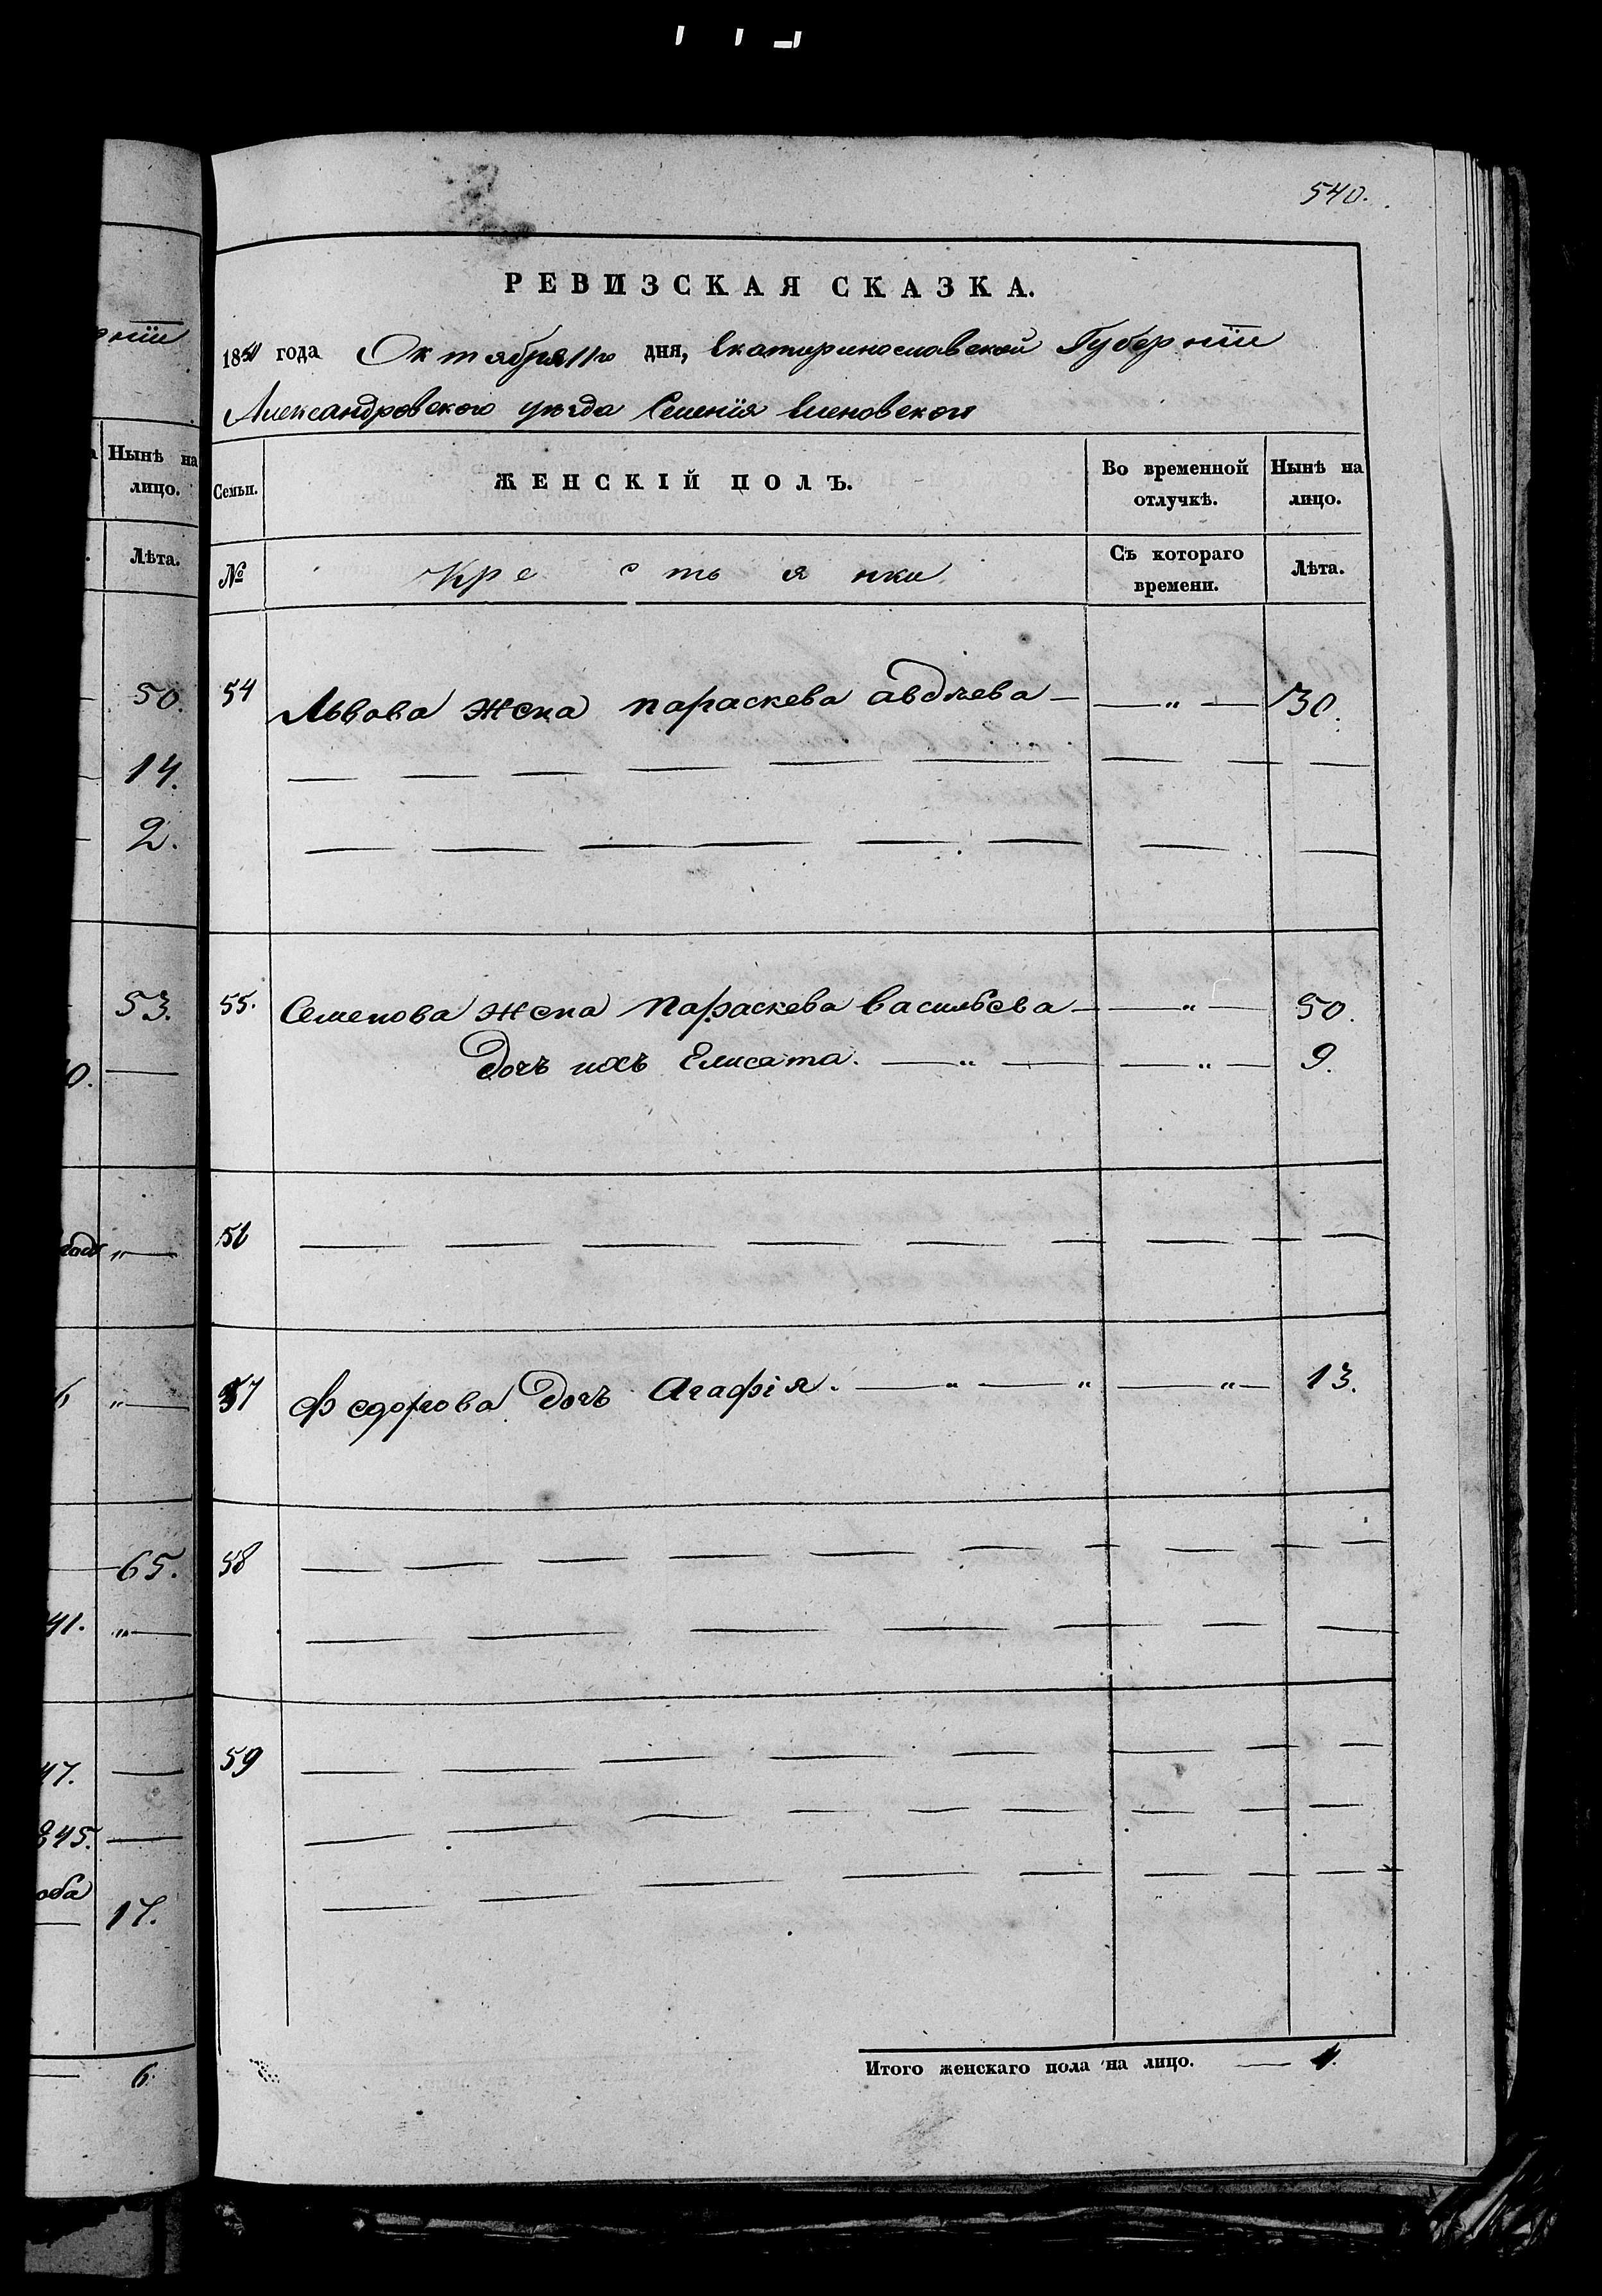 540.
РЕВИЗСКАЯ СКАЗКА.
рніи
1850 года Октября 11го дня, Екатеринославской Губерніи
Александровского уѣзда Селенія Еленовского
Нынѣ на лицо.
Семьи. ЖЕНСКІЙ ПОЛЪ. Во временной отлучкѣ. Нынѣ на лицо.
Лѣта.
№ Крестьянки Съ котораго времени. Лѣта.
50. 54 Львова жена параскева авдѣева — — " — 30.
14.
2.
53. 55. Семенова жена Параскева Васильева — — " — 50.
0. — Дочь ихъ Елисата. — " — — " — 9.
" — 56
6 " — 57 Федорова Дочь Агафія. — " — " — " — 13.
65. 58
41. " —
47. — 59
845. —
17.
6. Итого женскаго пола на лицо. — 4.